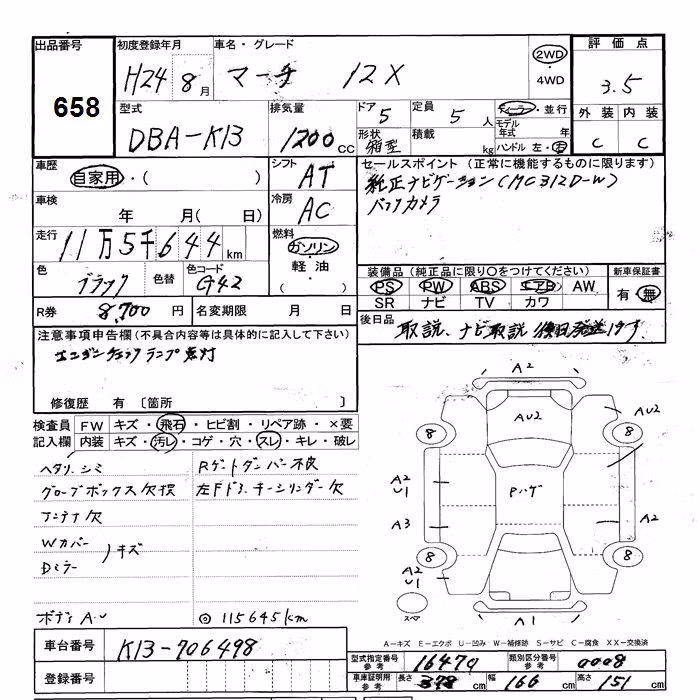 出品番号
658
初度登録年月
H24 8月
車名・グレード
マーチ 12X
2WD
・
4WD
評価点
3.5
外装 内装
C C
型式
DBA-K13
排気量
1200cc
ドア 5
定員 5人
形状 箱型
積載 kg
ディーラー・並行
モデル年式 年
ハンドル 左・右
車歴
自家用・( )
シフト
AT
セールスポイント (正常に機能するものに限ります)
純正ナビゲーション(MC312D-W)
バックカメラ
車検
年 月( 日)
冷房
AC
走行
11万5千644km
燃料
ガソリン
軽油
・( )
色
ブラック
色替
色コード
G42
装備品 (純正品に限り○をつけてください)
PS PW ABS エアB AW
SR ナビ TV カワ
新車保証書
有・無
R券 8,700円
名変期限 月 日
後日品
取説、ナビ取説 後日発送
注意事項申告欄 (不具合内容等は具体的に記入して下さい)
エンジンチェックランプ点灯
修復歴 有 〔箇所 〕
検査員記入欄
FW キズ・飛石・ヒビ割・リペア跡・×要
内装 キズ・汚レ・コゲ・穴・スレ・キレ・破レ
ヘタリ、シミ
Rゲートダンパー不良
グローブボックス欠損
左Fドア、キーシリンダー欠
アンテナ欠
Wカバー
Dミラー
キズ
ボディA・U
◎115645km
A2
AU2
AU2
8
8
A2
U1
Pハゲ
A3
A2
8
8
A2
U1
スペア
A1
A－キズ E－エクボ U－凹み W－補修跡 S－サビ C－腐食 XX－交換済
車台番号
K13-706498
登録番号
型式指定番号 参考
16479
類別区分番号 参考
0008
車庫証明用 参考
長さ 378cm
幅 166cm
高さ 151cm